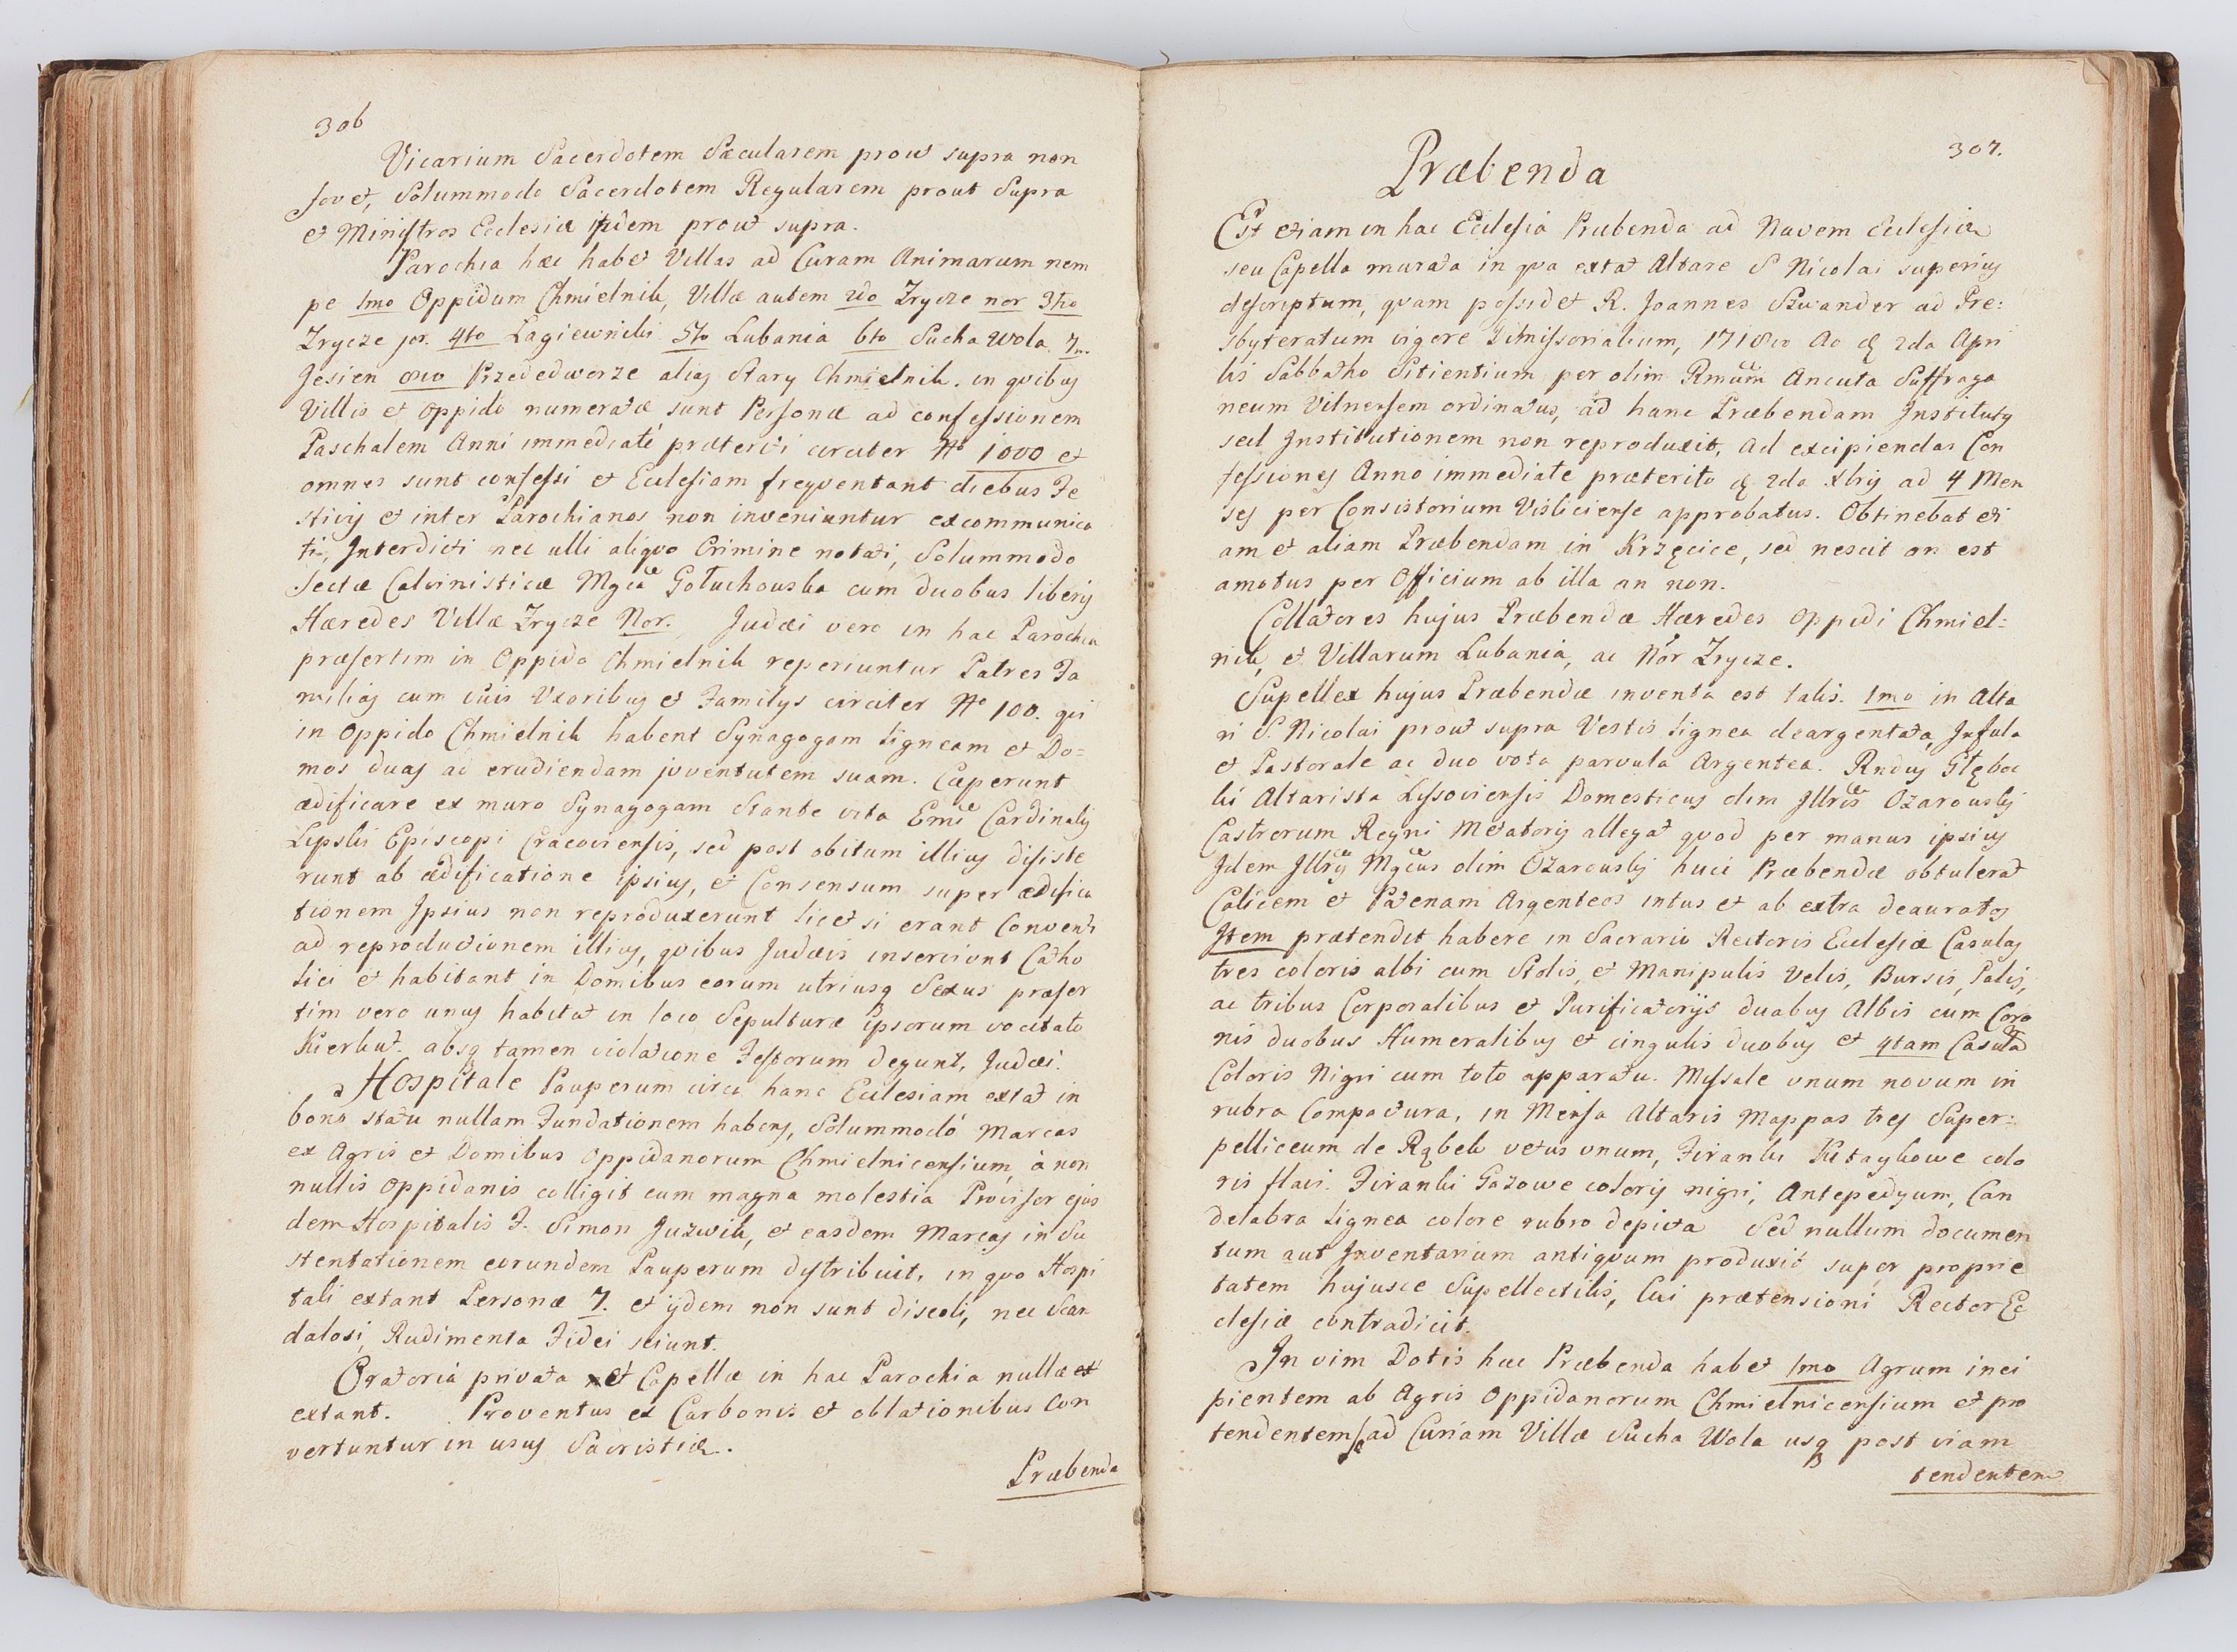 306
Vicarium Sacerdotem Sæcularem prout supra non
fovet, Solummodo Sacerdotem Regularem prout Supra
et Ministros Ecclesiæ itidem prout supra.
Parochia hæc habet Villas ad Curam Animarum nem
pe 1mo Oppidum Chmielnik, Villæ autem 2do Zrycze nor 3tio
Zrycze jor. 4to Łagiewniki 5to Lubania 6to Sucha Wola 7mo
Jesien 8vo Przededworze alias Stary Chmielnik. in quibus
Villis et Oppido numeratæ sunt Personæ ad confessionem
Paschalem Anni immediatè præteriti circiter No 1000 et
omnes sunt confessi et Ecclesiam freqventant diebus Fe
stivis et inter Parochianos non inveniuntur excommunica
ti, Interdicti nec ulli aliqvo Crimine notati, Solummodo
Sectæ Calvinisticæ Mgca Gołuchouska cum duobus liberis
Hæredes Villæ Zrycze Nor. Judæi vero in hac Parochia
præsertim in Oppido Chmielnik reperiuntur Patres Fa
milias cum suis Uxoribus et Familijs circiter No 100. qui
in Oppido Chmielnik habent Synagogam ligneam et Do=
mos duas ad erudiendam juventutem suam. Cæperunt
ædificare ex muro Synagogam stante vita Emi Cardinalis
Lipski Episcopi Cracoviensis, sed post obitum illius disiste
runt ab ædificatione ipsius, et Consensum super ædifica
tionem Ipsius non reproduxerunt licet si erant Conventi
ad reproductionem illius, qvibus Judæis inserviunt Catho
lici et habitant in Domibus eorum utriusq Sexus præser
tim vero unus habitat in loco Sepulturæ ipsorum vocitato
Kierkut. absq tamen violatione Festorum degunt, Judæi.
Hospitale Pauperum circa hanc Ecclesiam extat in
bono statu nullam Fundationem habens, Solummodò Marcas
ex Agris et Domibus Oppidanorum Chmielnicensium à non
nullis Oppidanis colligit cum magna molestia Provisor ejus
dem Hospitalis F. Simon Juzwik, et easdem Marcas in Su
stentationem eorundem Pauperum dystribuit, in qvo Hospi
tali extant Personæ 7. et ijdem non sunt discoli, nec Scan
dalosi, Rudimenta Fidei sciunt.
Oratoria privata et Capellæ in hac Parochia nullæ
extant. Proventus ex Carbonis et oblationibus con
vertuntur in usus Sacristiæ.
Præbenda
307.
Præbenda
Est etiam in hac Ecclesia Præbenda ad Navem Ecclesiæ
seu Capella murata in qva extat Altare S Nicolai superius
descriptum, qvam possidet R. Joannes Szwander ad Pre:
sbyteratum vigore Dimissorialium, 1718vo Ao d 2da Apri
lis Sabbatho Sitientium per olim Rmum Ancuta Suffraga
neum Vilnensem ordinatus, ad hanc Præbendam Institutus
sed Institutionem non reproduxit, Ad excipiendas Con
fessiones Anno immediate præterito d 2da Xbris ad 4 Men
ses per Consistorium Visliciense approbatus. Obtinebat eti
am et aliam Præbendam in Krzęcice, sed nescit an est
amotus per Officium ab illa an non.
Collatores hujus Præbendæ Hæredes Oppidi Chmiel=
nik, et Villarum Lubania, ac Nor Zrycze.
Supellex hujus Præbendæ inventa est talis. 1mo in Alta
ri S. Nicolai prout supra Vestis lignea deargentata, Infula
et Pastorale ac duo vota parvula Argentea. Rndus Głęboc
ki Altarista Lyssoviensis Domesticus olim Illris Ożarouskj
Castrorum Regni Metatoris allegat qvod per manus ipsius
Idem Illris Mgcus olim Ożarouskj huic Præbendæ obtulerat
Calicem et Patenam Argenteos intus et ab extra deauratos
Item prætendit habere in Sacrario Rectoris Ecclesiæ Casulas
tres coloris albi cum Stolis, et Manipulis Velis, Bursis, Palis,
ac tribus Corporalibus et Purificatorijs duabus Albis cum Coro
nis duobus Humeralibus et cingulis duobus et 4tam Casulam
Coloris Nigri cum toto apparatu. Missale unum novum in
rubra Compactura, in Mensa Altaris Mappas tres Super=
pelliceum de Rąbek vetus unum, Firanki Kitaykowe colo
ris flavi. Firanki Gazowe coloris nigri, Antepedyum, Can
delabra lignea colore rubro depicta Sed nullum documen
tum aut Inventarium antiqvum produxit super proprie
tatem hujusce Supellectilis, Cui prætensioni Rector Ec
clesiæ contradicit.
In vim Dotis hæc Præbenda habet 1mo Agrum inci
pientem ab Agris Oppidanorum Chmielnicensium et pro
tendentem se ad Curiam Villæ Sucha Wola usq post viam
tendentem